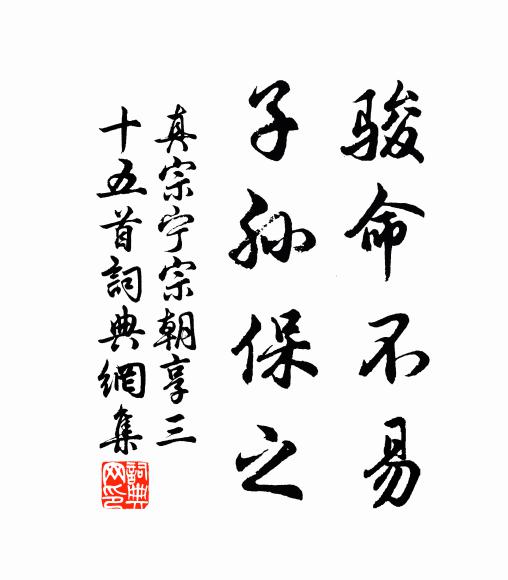 骏命不易
子孙保之
真宗宁宗朝享三
十五首詞典網集
詞典
网印